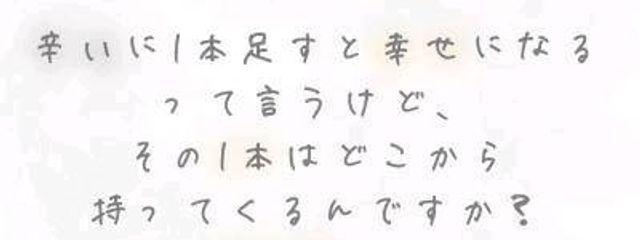 辛いに1本足すと幸せになる
って言うけど、
その1本はどこから
持ってくるんですか?